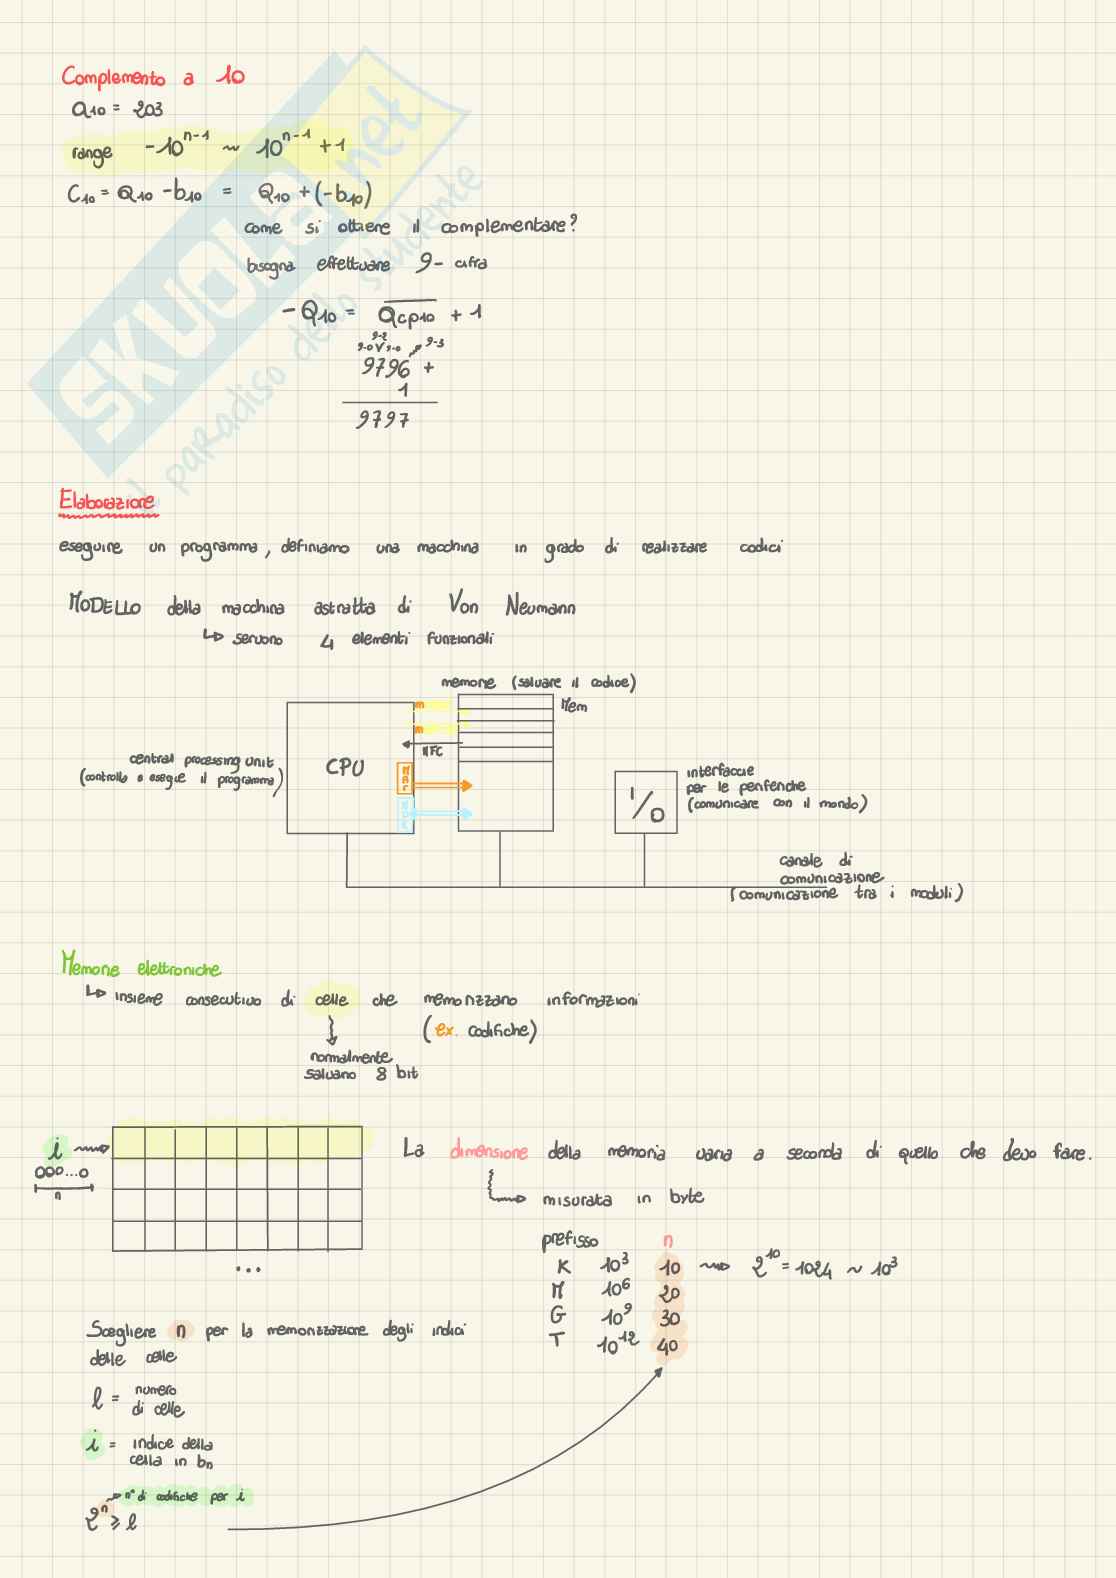 Complemento a 10
a₁₀ = 203
range -10ⁿ⁻¹ ~ 10ⁿ⁻¹ +1
C₁₀ = a₁₀ - b₁₀ = a₁₀ + (-b₁₀)
come si ottiene il complementare?
bisogna effettuare 9- cifra
-a₁₀ = a̅c̅p̅₁₀ + 1
9-2
9-0 9-0 9-3
9796 +
1
9797
Elaborazione
eseguire un programma, definiamo una macchina in grado di realizzare codici
MODELLO della macchina astratta di Von Neumann
↳ servono 4 elementi funzionali
memorie (salvare il codice)
Mem
m
m
MFC
CPU
MAR
MDR
central processing unit
(controlla e esegue il programma)
I/O
interfaccie
per le periferiche
(comunicare con il mondo)
canale di
comunicazione
(comunicazione tra i moduli)
Memorie elettroniche
↳ insieme consecutivo di celle che memorizzano informazioni
(ex. codifiche)
normalmente
salvano 8 bit
i
000...0
n
...
La dimensione della memoria varia a seconda di quello che devo fare.
misurata in byte
prefisso n
K 10³ 10 → 2¹⁰ = 1024 ~ 10³
M 10⁶ 20
G 10⁹ 30
T 10¹² 40
Scegliere n per la memorizzazione degli indici
delle celle
l = numero
di celle
i = indice della
cella in bn
→ n° di codifiche per i
2ⁿ ≥ l
SKUOLA.net
il paradiso dello studente